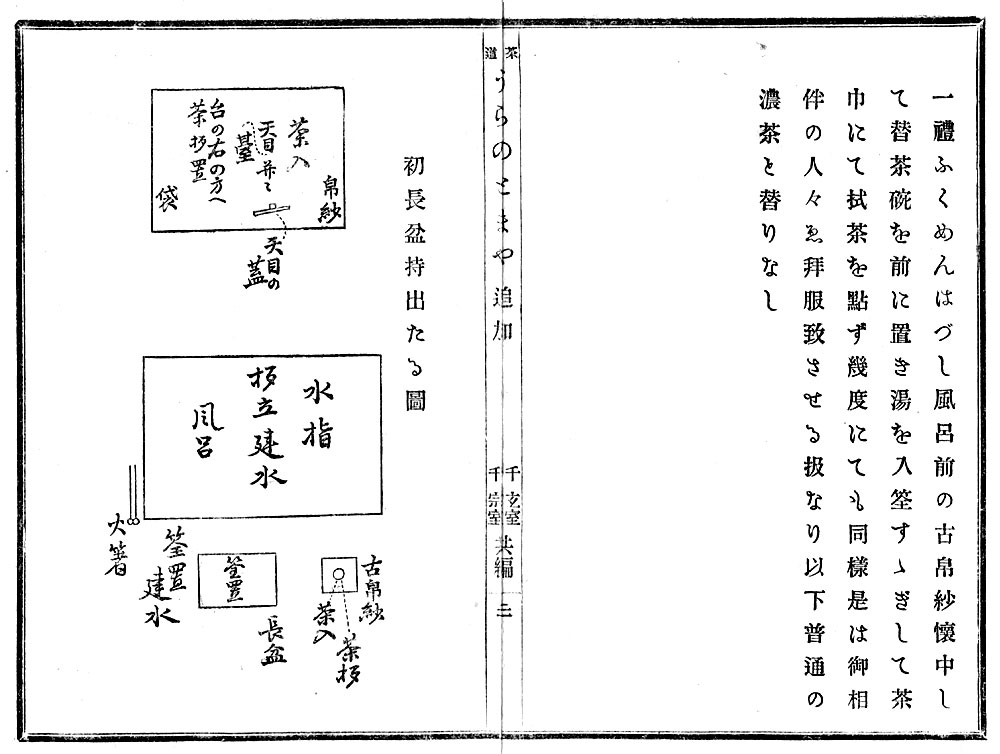 一禮ふくめんはづし風呂前の古帛紗懷中し
て替茶碗を前に置き湯を入筌すゝぎして茶
巾にて拭茶を點ず幾度にても同樣是は御相
伴の人々ゑ拜服致させる扱なり以下普通の
濃茶と替りなし
茶道
うらのとまや追加
千玄室
千宗室
共編
二
初長盆持出たる圖
帛紗
茶入
天目并ニ
臺
台の右の方へ
茶杓置
袋
天目の
蓋
水指
杓立建水
風呂
火箸
筌置
建水
筌置
長盆
古帛紗
茶入
茶杓